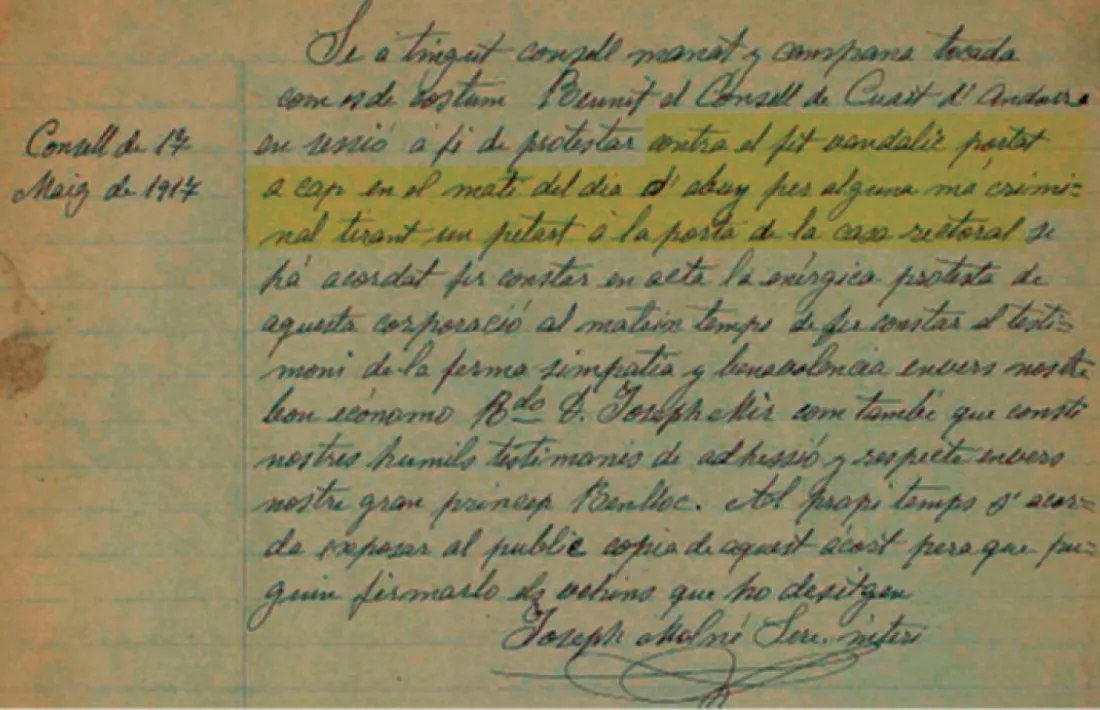 Se a tingut consell manat y campana tocada
com es de costum Reunit el Consell de Cuart d'Andorra
Consell de 17
Maig de 1917
en sesió á fi de protestar contra el fet vandalic portat
a cap en el matí del dia d'abuy per alguna má crimi=
nal tirant un petart á la porta de la casa rectoral se
há acordat fer constar en acta la enérgica protesta de
aquesta corporació al mateix temps de fer constar el testi=
moni de la ferma simpatia y benavolencia envers nostre
bon ecónomo Rdo D. Joseph Mir com també que consti
nostres humils testimonis de adhessió y respecte envers
nostre gran princep Benlloc. Al propi temps s'acor=
da exposar al public copia de aquest acort pera que pu=
guin firmarlo els vehins que ho desitgen
Joseph Molné Secr. interi